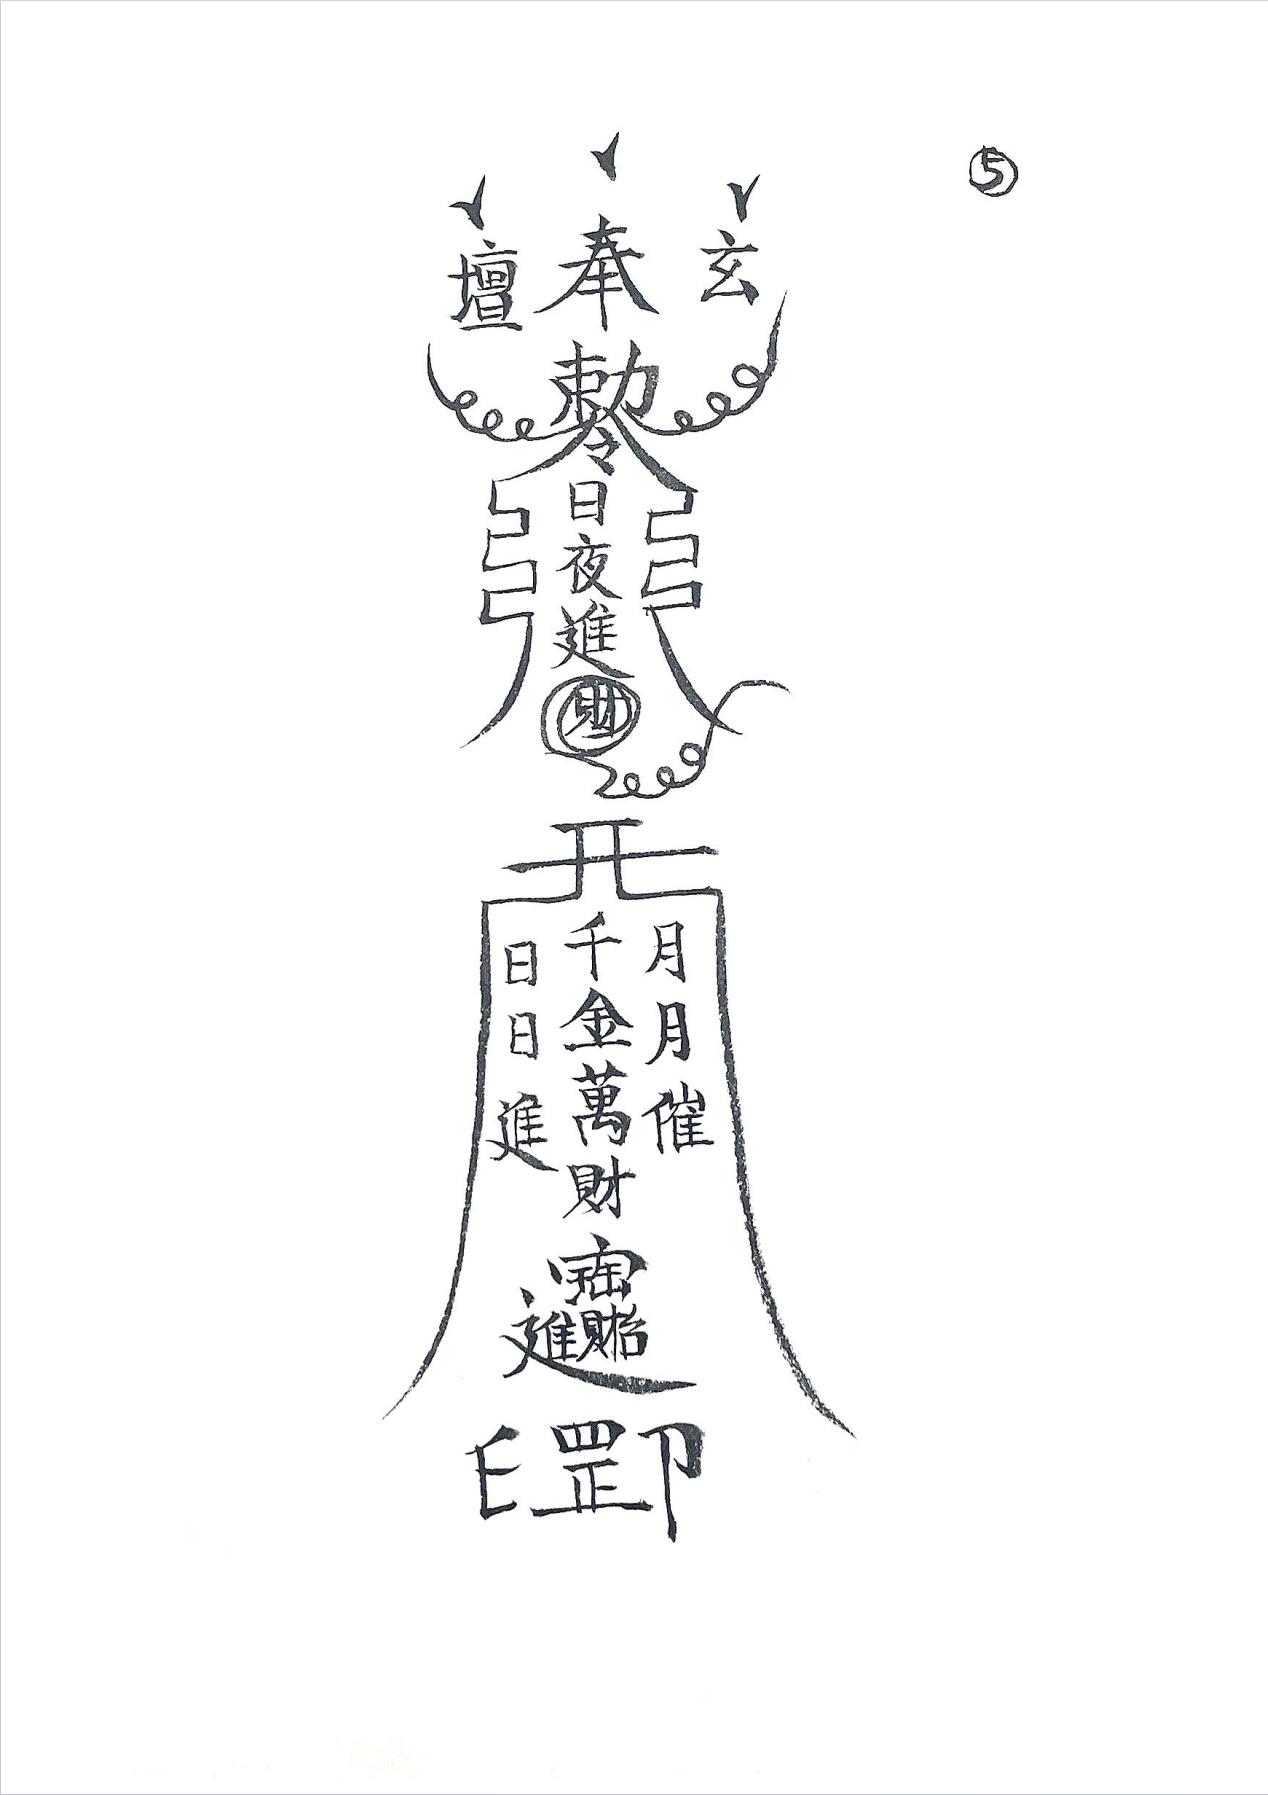 ⑤
玄
奉
壇
勅令
日夜進
財
月月催
千金萬財
日日進
罡
印